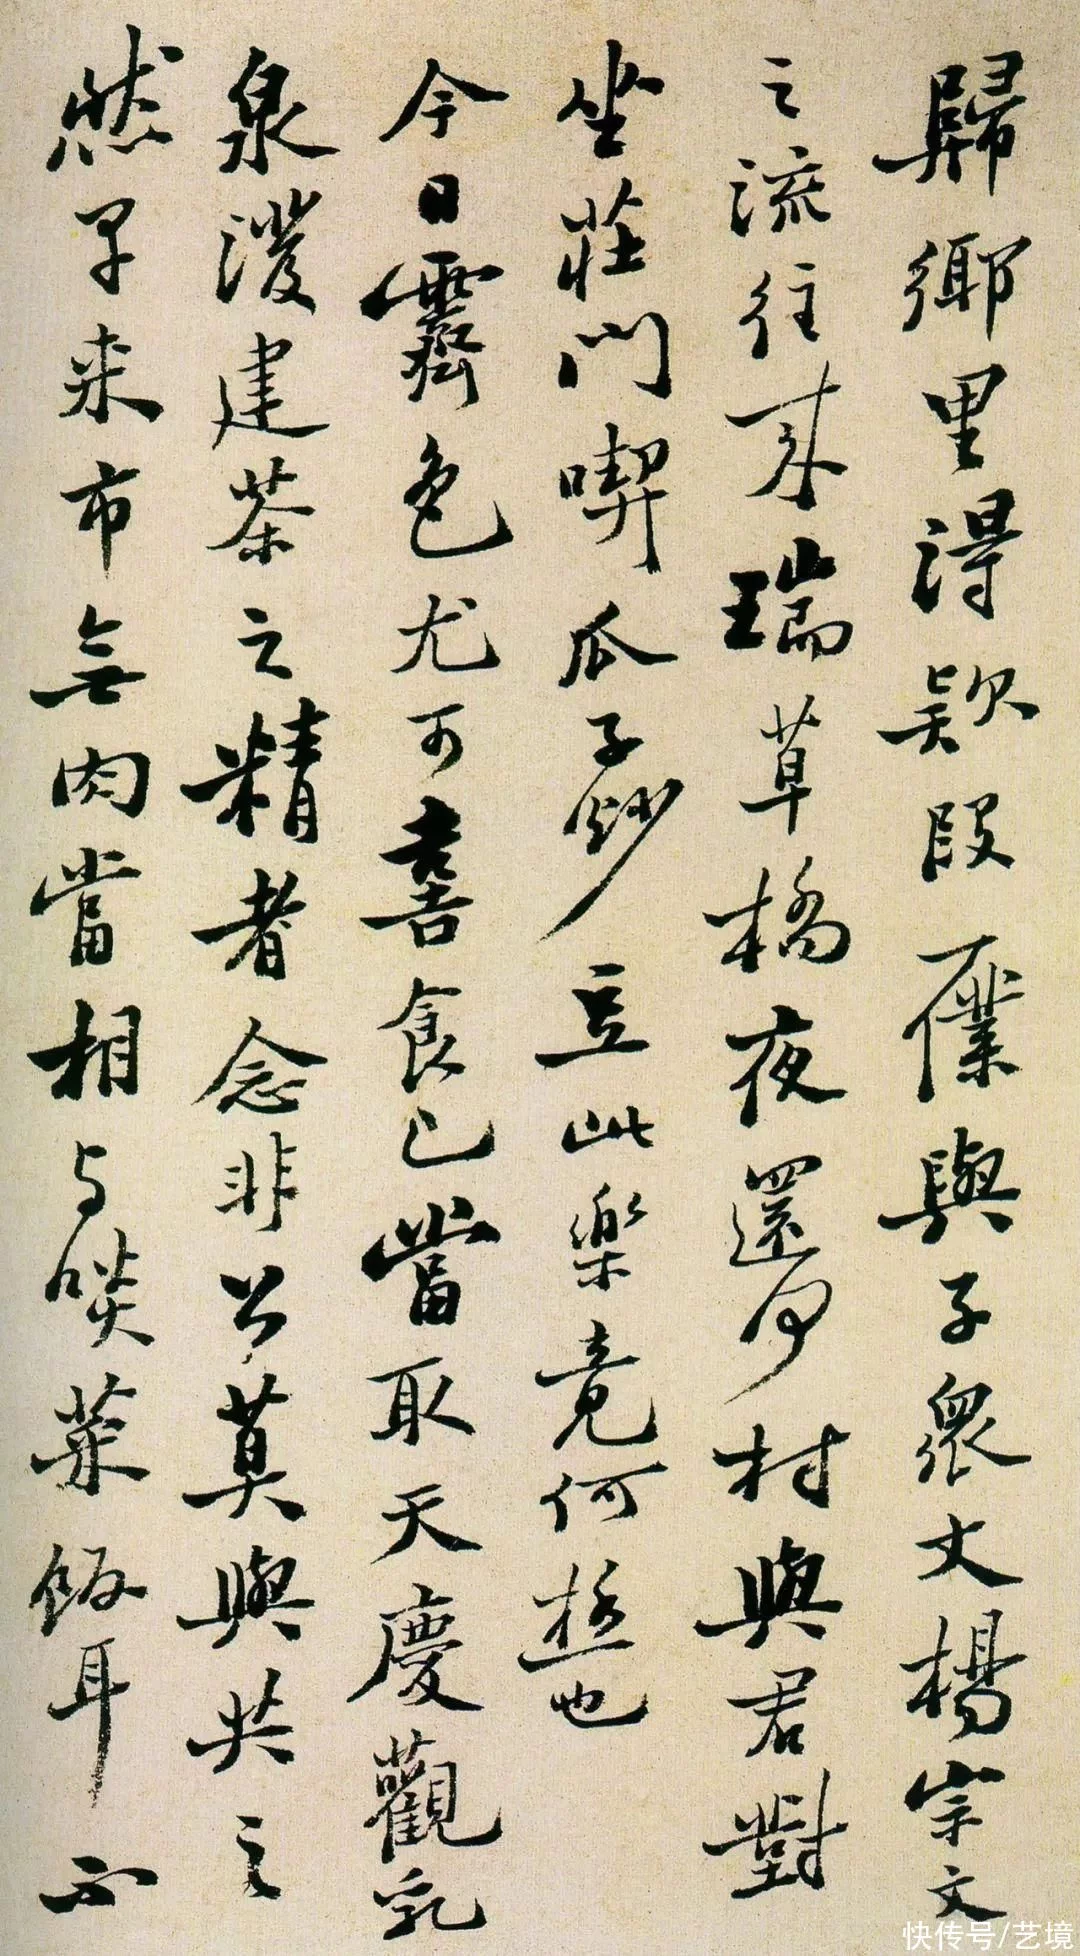 歸鄉里得款段一僕與子眾丈楊宗文
之流往来瑞草橋夜還何村與君對
坐莊門喫瓜子炒豆此樂竟何極也
今日霽色尤可喜食已當取天慶觀乳
泉潑建茶之精者念非公莫與共之
然早来市無肉當相与啖菜飯耳不
快传号/艺境